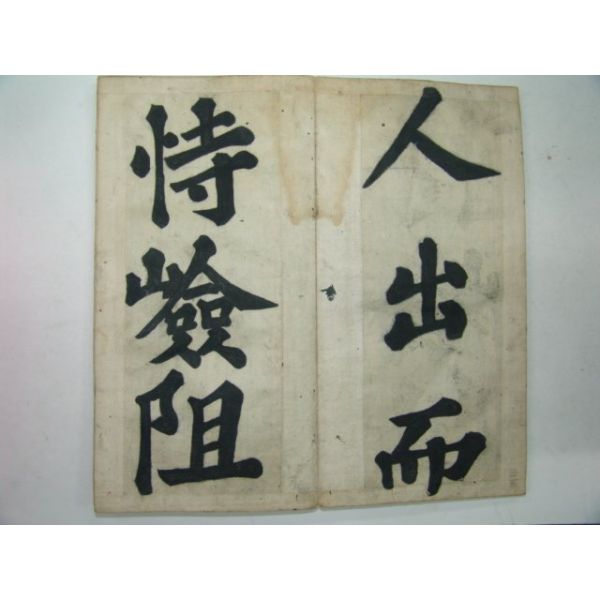 人出而
恃嶮阻